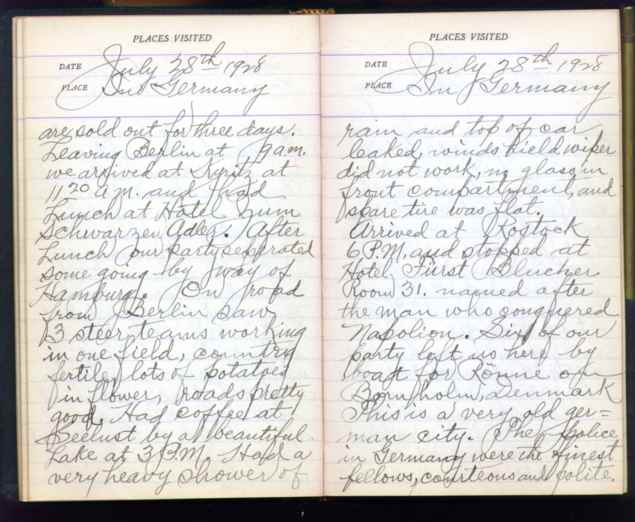 PLACES VISITED
DATE July 28th 1928
PLACE In Germany
are sold out for three days.
Leaving Berlin at 9 am.
we arrived at Kyritz at
11 20 A.M. and had
Lunch at Hotel Zum
Schwarzen Adler. After
Lunch our party seperated
some going by way of
Hamburg. On road
from Berlin saw
13 steer teams working
in one field, country
fertile, lots of potatoes
in flower, roads pretty
good, Had coffee at
by a beautiful
Lake at 3 P.M. Had a
very heavy shower of
PLACES VISITED
DATE July 28th 1928
PLACE In Germany
rain and top of car
leaked, windshield wiper
did not work, no glass in
front compartment, and
spare tire was flat.
Arrived at Rostock
6 P.M. and stopped at
Hotel Fürst Blucher
Room 31. named after
the man who conquered
Napolion. Six of our
party left us here by
boat for Rönne on
Bornholm, Denmark
This is a very old ger=
man city. The Police
in Germany were the finest
fellows, courteous and polite.